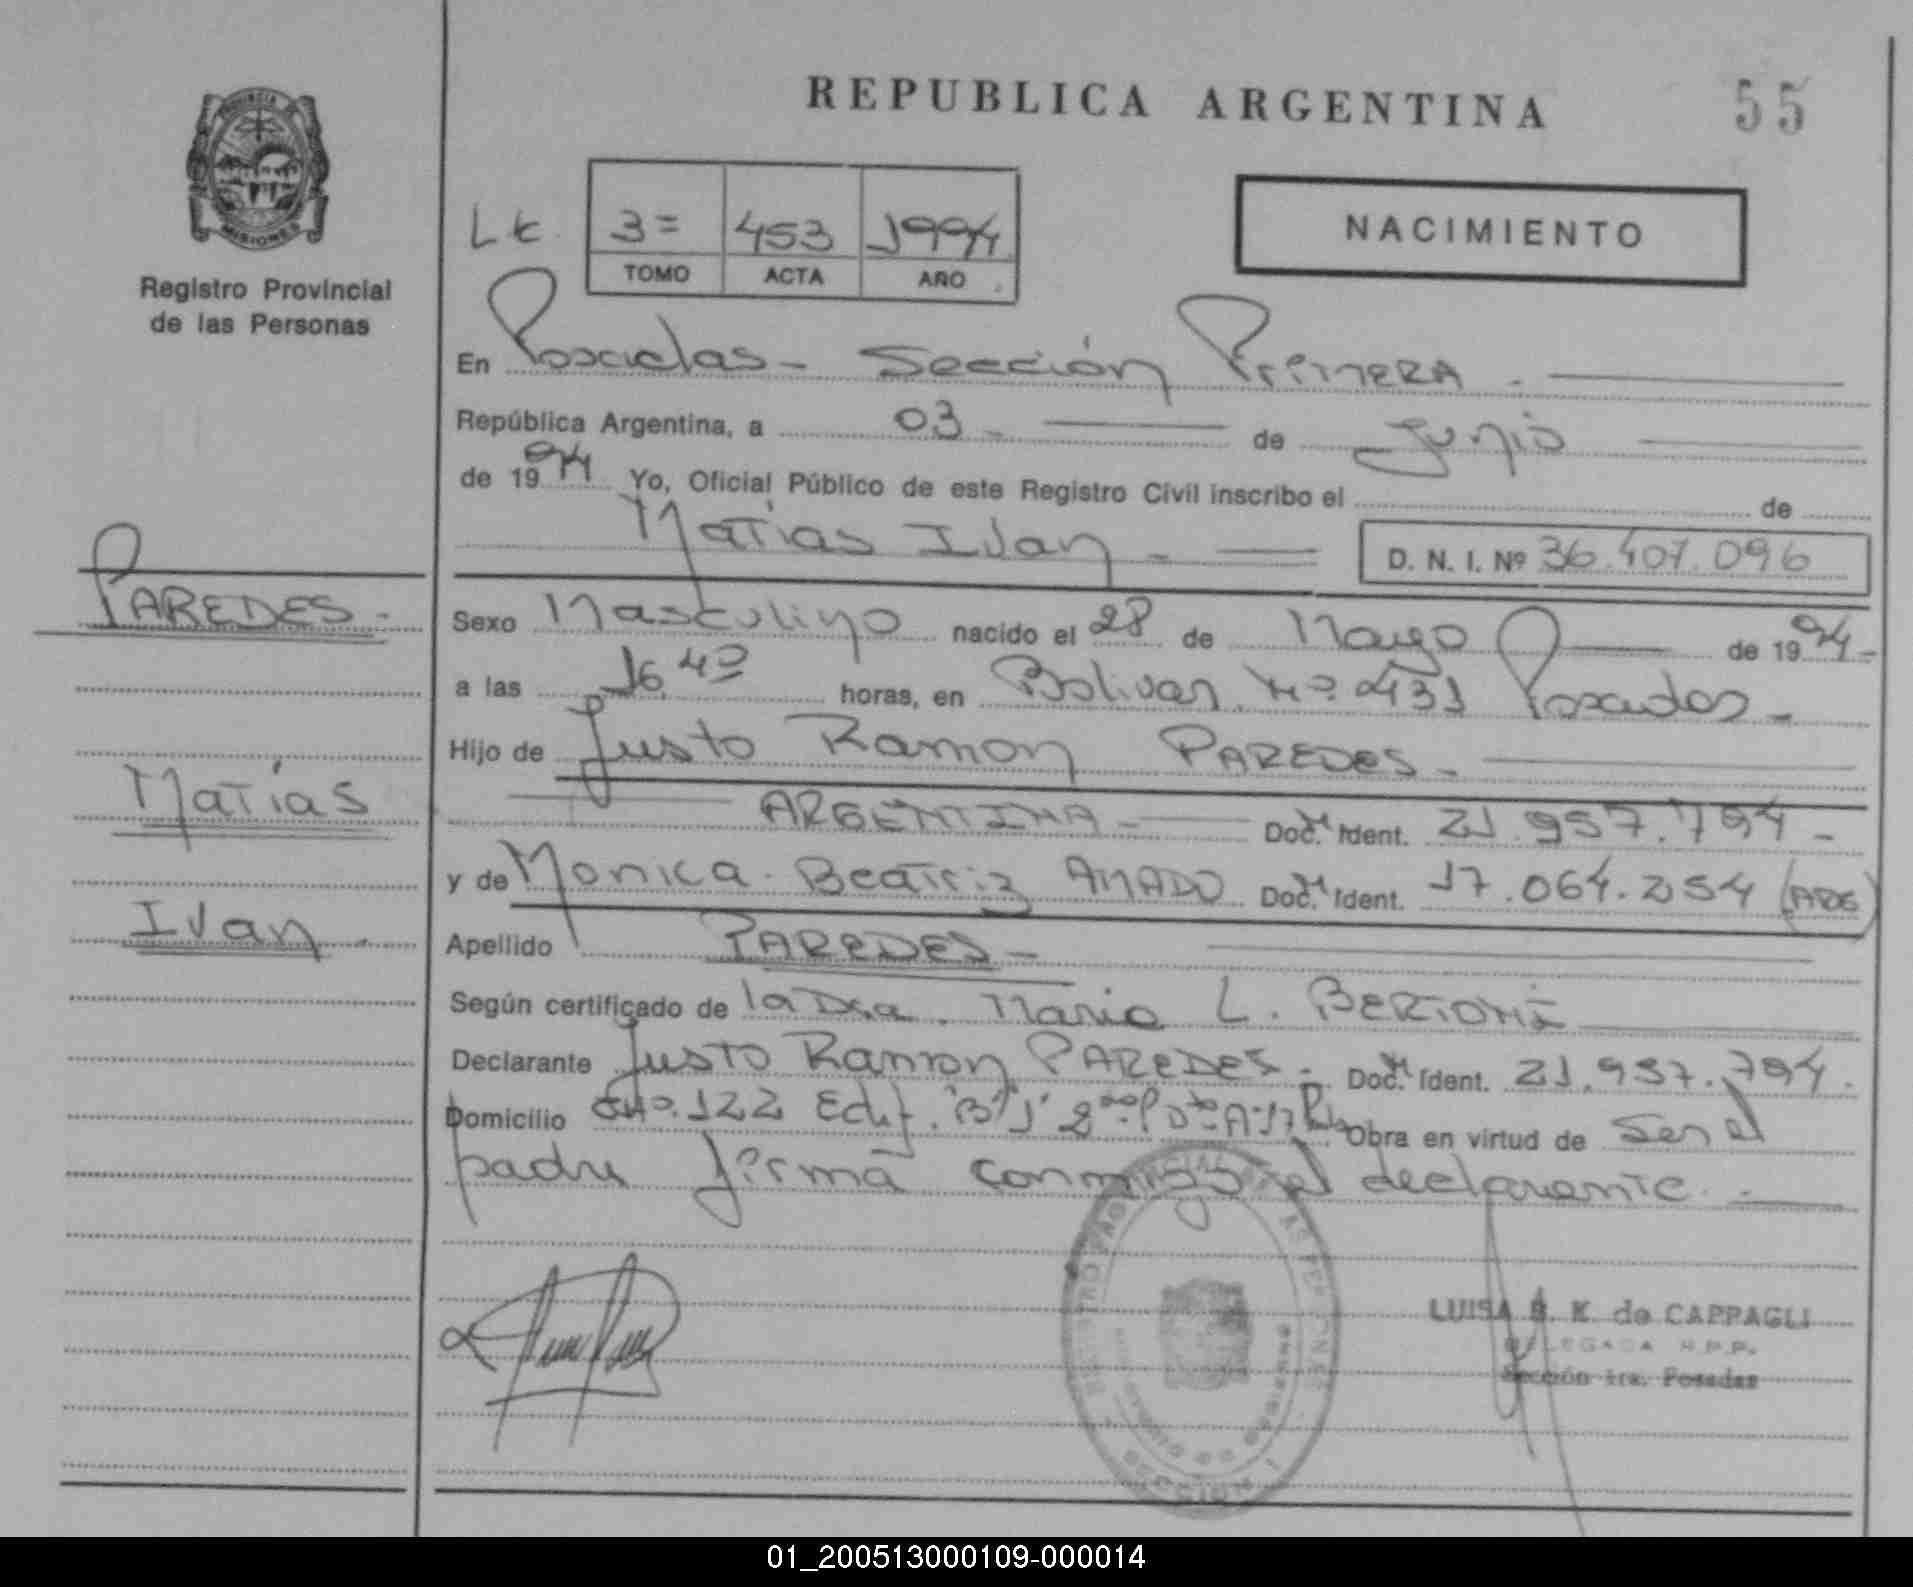 REPUBLICA ARGENTINA
55
PROVINCIA
MISIONES
Registro Provincial
de las Personas
NACIMIENTO
3= 453 1994
TOMO ACTA AÑO
En Posadas - Sección Primera. -
República Argentina, a 03 - de Junio
de 1994 Yo, Oficial Público de este Registro Civil inscribo el de
Matias Ivan -
D. N. I. Nº 36.407.096
PAREDES -
Matias
Ivan.
Sexo Masculino nacido el 28 de Mayo de 1994-
a las 16,40 horas, en Bolivar. Nº 431 Posadas -
Hijo de Justo Ramon PAREDES -
ARGENTINA - Doc. Ident. 21.957.794 -
y de Monica Beatriz AMADO Doc. Ident. 17.064.254 (ARG)
Apellido PAREDES -
Según certificado de la Dra. Maria L. BERTONI
Declarante Justo Ramon PAREDES - Doc. Ident. 21.957.794.
Domicilio 122 Edif. Obra en virtud de ser el
padre firma conmigo el declarante. -
LUISA K. de CAPPAGLI
DELEGADA R.P.P.
Sección 1ra. Posadas
01_200513000109-000014